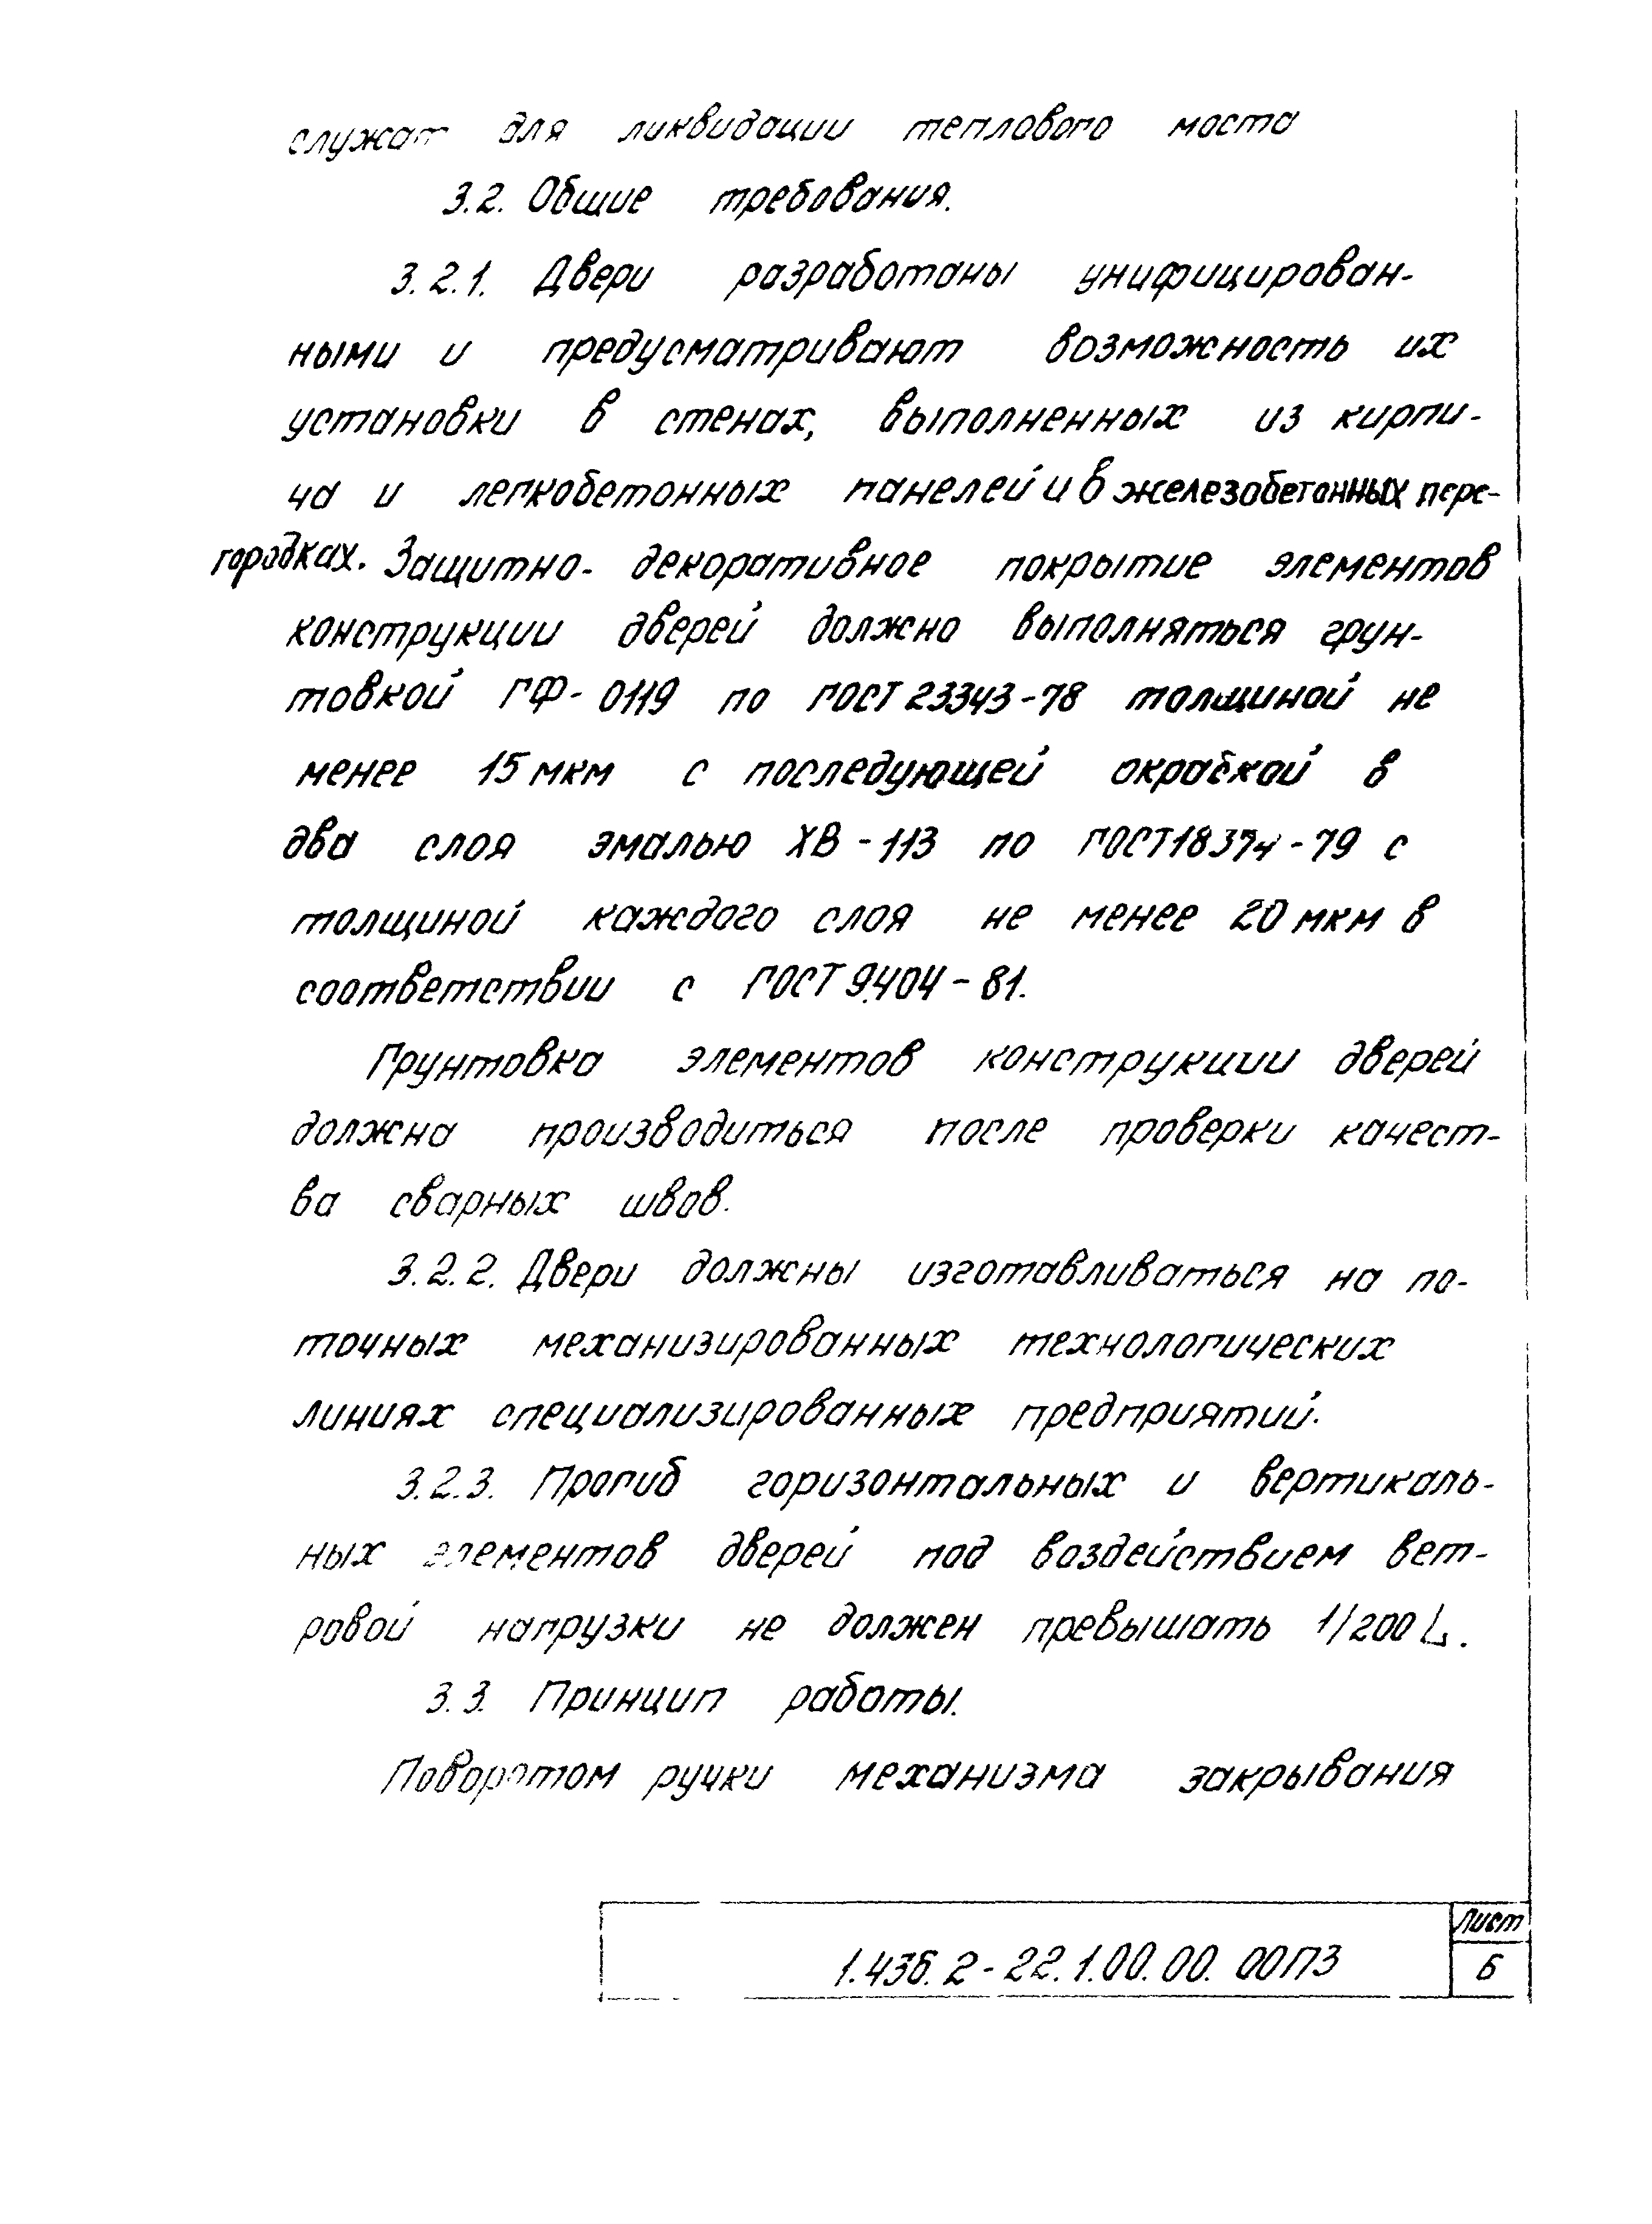 служат для ликвидации теплового моста
3.2. Общие требования.
3.2.1. Двери разработаны унифицирован-
ными и предусматривают возможность их
установки в стенах, выполненных из кирпи-
ча и легкобетонных панелей и в железобетонных пере-
городках. Защитно- декоративное покрытие элементов
конструкции дверей должно выполняться грун-
товкой ГФ-0119 по ГОСТ 23343-78 толщиной не
менее 15 мкм с последующей окраской в
два слоя эмалью ХВ-113 по ГОСТ 18374-79 с
толщиной каждого слоя не менее 20 мкм в
соответствии с ГОСТ 9.404-81.
Грунтовка элементов конструкции дверей
должна производиться после проверки качест-
ва сварных швов.
3.2.2. Двери должны изготавливаться на по-
точных механизированных технологических
линиях специализированных предприятий.
3.2.3. Прогиб горизонтальных и вертикаль-
ных элементов дверей под воздействием вет-
ровой нагрузки не должен превышать 1/200 L.
3.3. Принцип работы.
Поворотом ручки механизма закрывания
1.436.2-22.1.00.00.00ПЗ
Лист
6